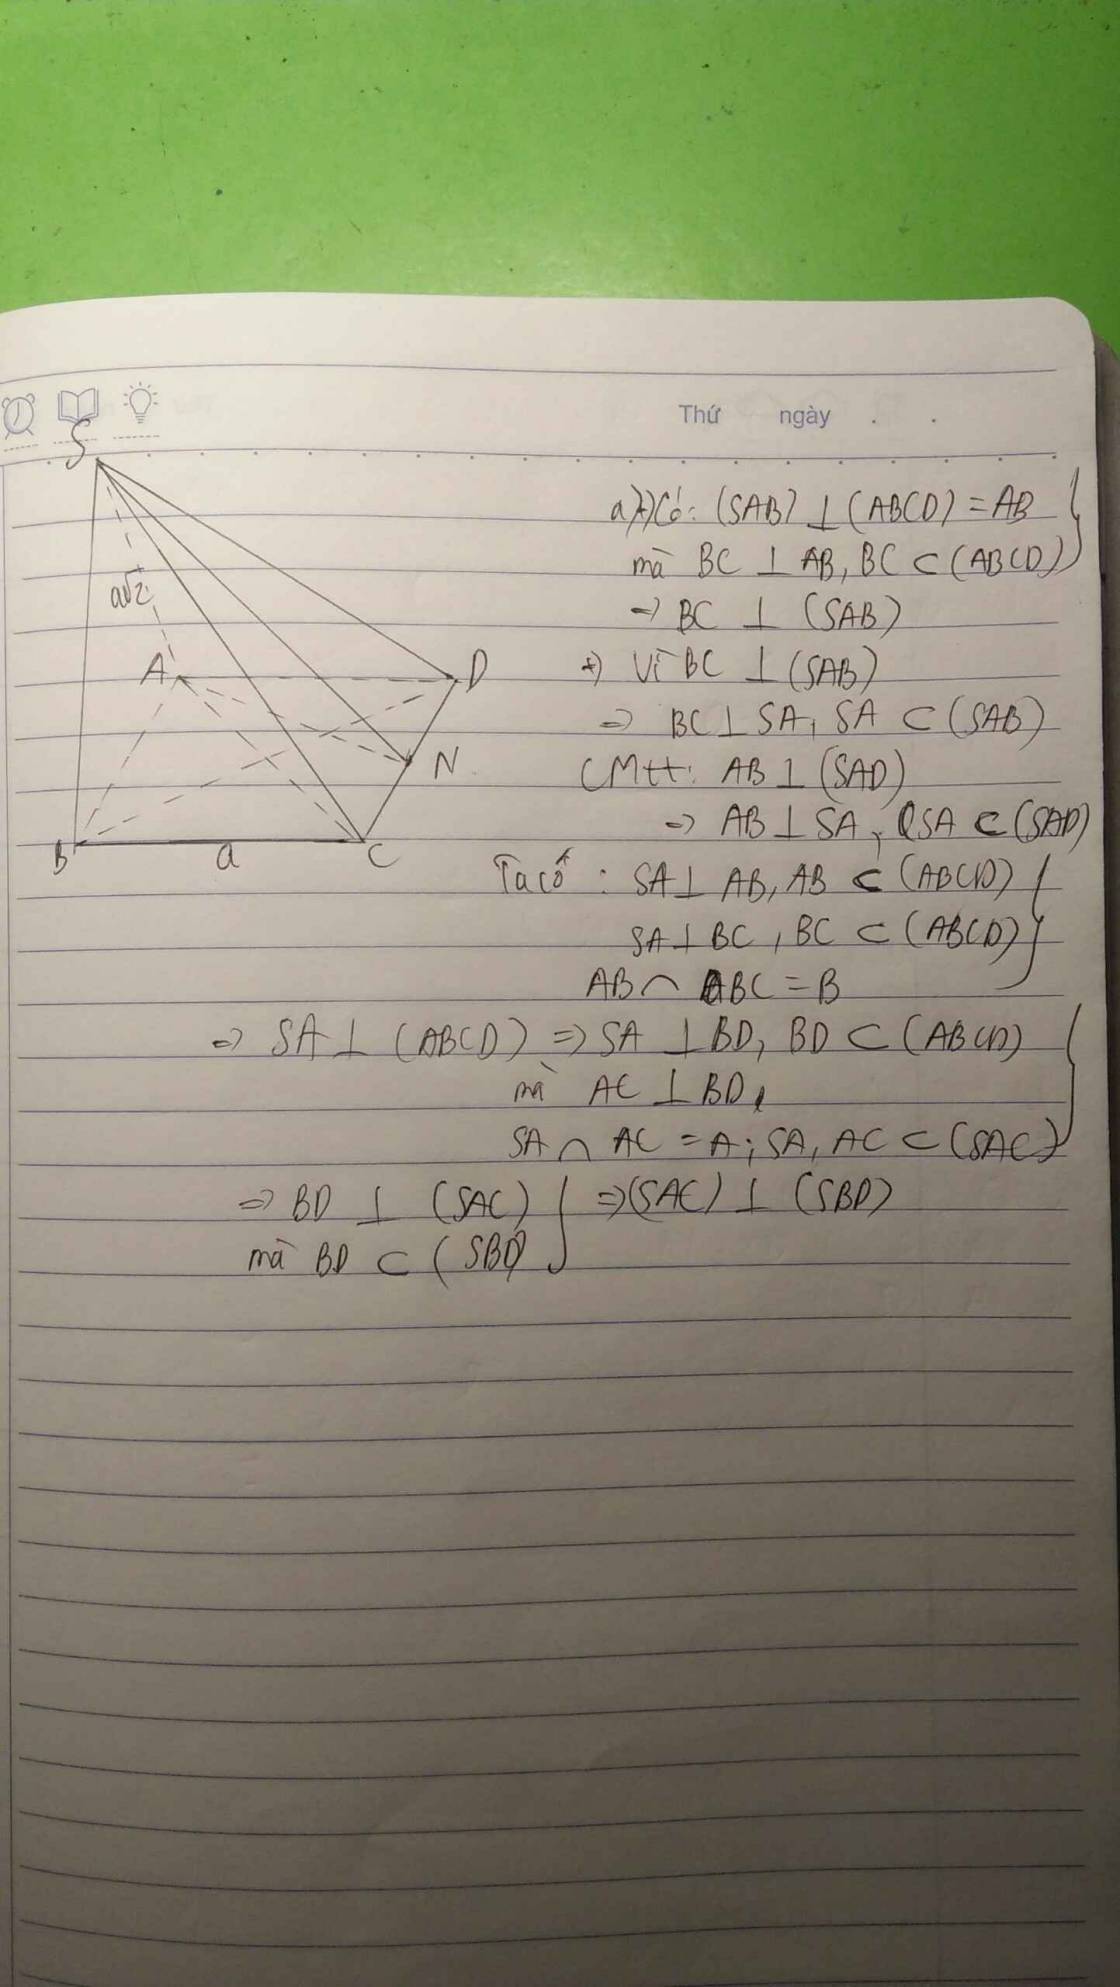 Thứ ngày . .
S
a√2
A
D
N
B
a
C
a) +) Có: (SAB) ⊥ (ABCD) = AB
mà BC ⊥ AB, BC ⊂ (ABCD)
=> BC ⊥ (SAB)
+) Vì BC ⊥ (SAB)
=> BC ⊥ SA, SA ⊂ (SAB)
CMtt: AB ⊥ (SAD)
=> AB ⊥ SA, SA ⊂ (SAD)
Ta có : SA ⊥ AB, AB ⊂ (ABCD)
SA ⊥ BC, BC ⊂ (ABCD)
AB ∩ BC = B
=> SA ⊥ (ABCD) => SA ⊥ BD, BD ⊂ (ABCD)
mà AC ⊥ BD,
SA ∩ AC = A; SA, AC ⊂ (SAC)
=> BD ⊥ (SAC) } => (SAC) ⊥ (SBD)
mà BD ⊂ (SBD)